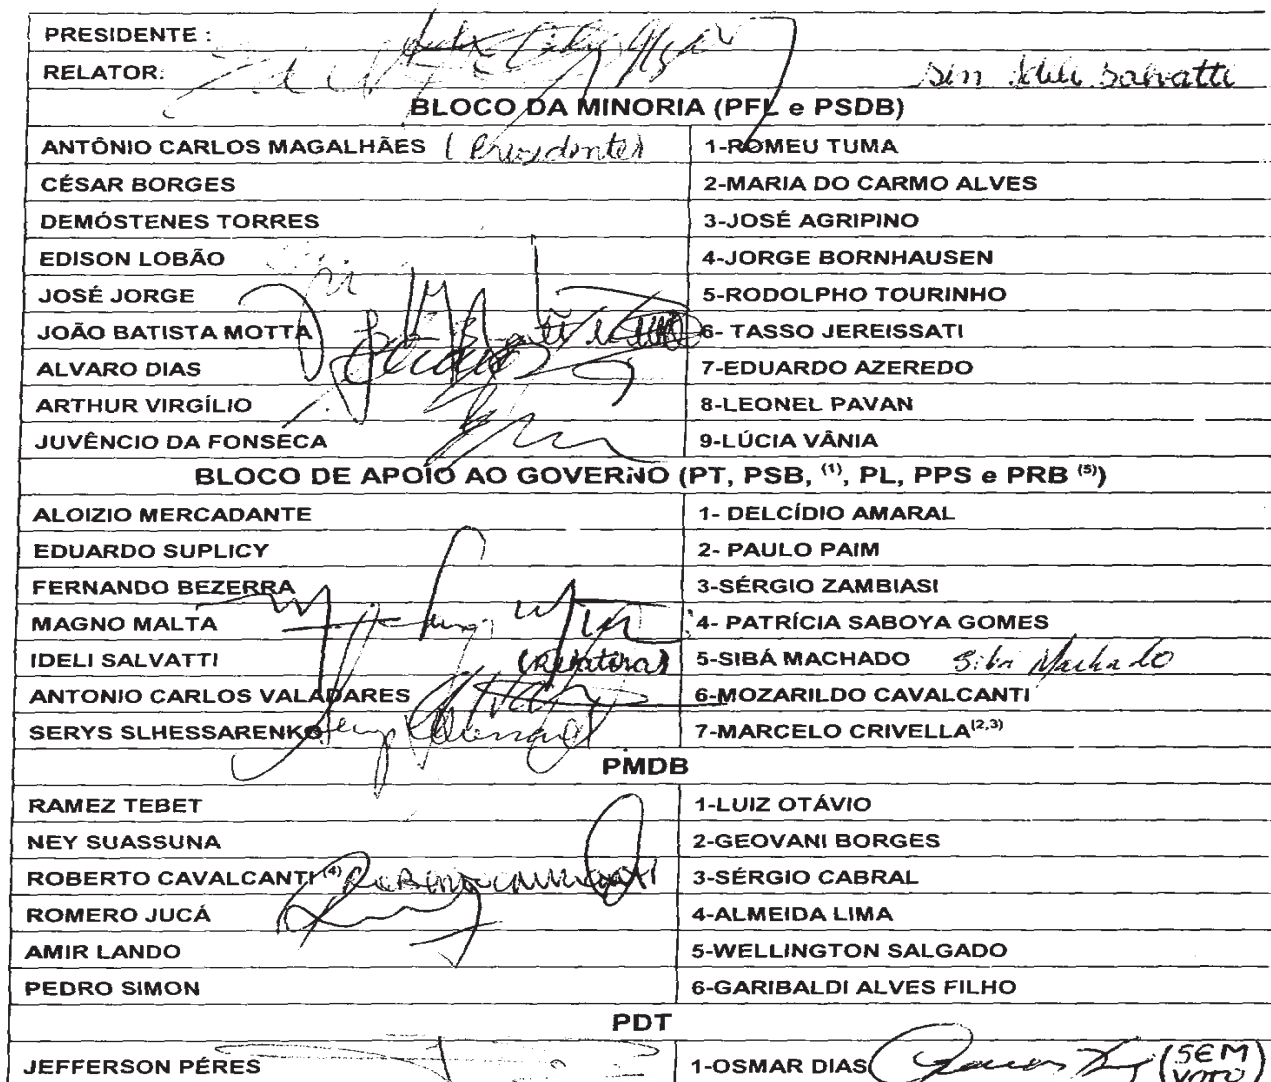 PRESIDENTE :
RELATOR: Sen Ideli Salvatti
BLOCO DA MINORIA (PFL e PSDB)
ANTÔNIO CARLOS MAGALHÃES (Presidente) 1-ROMEU TUMA
CÉSAR BORGES 2-MARIA DO CARMO ALVES
DEMÓSTENES TORRES 3-JOSÉ AGRIPINO
EDISON LOBÃO 4-JORGE BORNHAUSEN
JOSÉ JORGE 5-RODOLPHO TOURINHO
JOÃO BATISTA MOTTA 6- TASSO JEREISSATI
ALVARO DIAS 7-EDUARDO AZEREDO
ARTHUR VIRGÍLIO 8-LEONEL PAVAN
JUVÊNCIO DA FONSECA 9-LÚCIA VÂNIA
BLOCO DE APOIO AO GOVERNO (PT, PSB, (1), PL, PPS e PRB (5))
ALOIZIO MERCADANTE 1- DELCÍDIO AMARAL
EDUARDO SUPLICY 2- PAULO PAIM
FERNANDO BEZERRA 3-SÉRGIO ZAMBIASI
MAGNO MALTA 4- PATRÍCIA SABOYA GOMES
IDELI SALVATTI (Relatora) 5-SIBÁ MACHADO Sibá Machado
ANTONIO CARLOS VALADARES 6-MOZARILDO CAVALCANTI
SERYS SLHESSARENKO 7-MARCELO CRIVELLA(2,3)
PMDB
RAMEZ TEBET 1-LUIZ OTÁVIO
NEY SUASSUNA 2-GEOVANI BORGES
ROBERTO CAVALCANTI (4) 3-SÉRGIO CABRAL
ROMERO JUCÁ 4-ALMEIDA LIMA
AMIR LANDO 5-WELLINGTON SALGADO
PEDRO SIMON 6-GARIBALDI ALVES FILHO
PDT
JEFFERSON PÉRES 1-OSMAR DIAS (SEM VOTO)